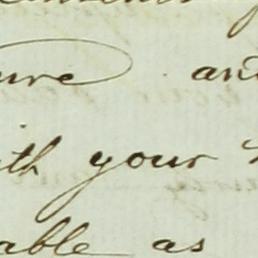 ure and
ith your
able as